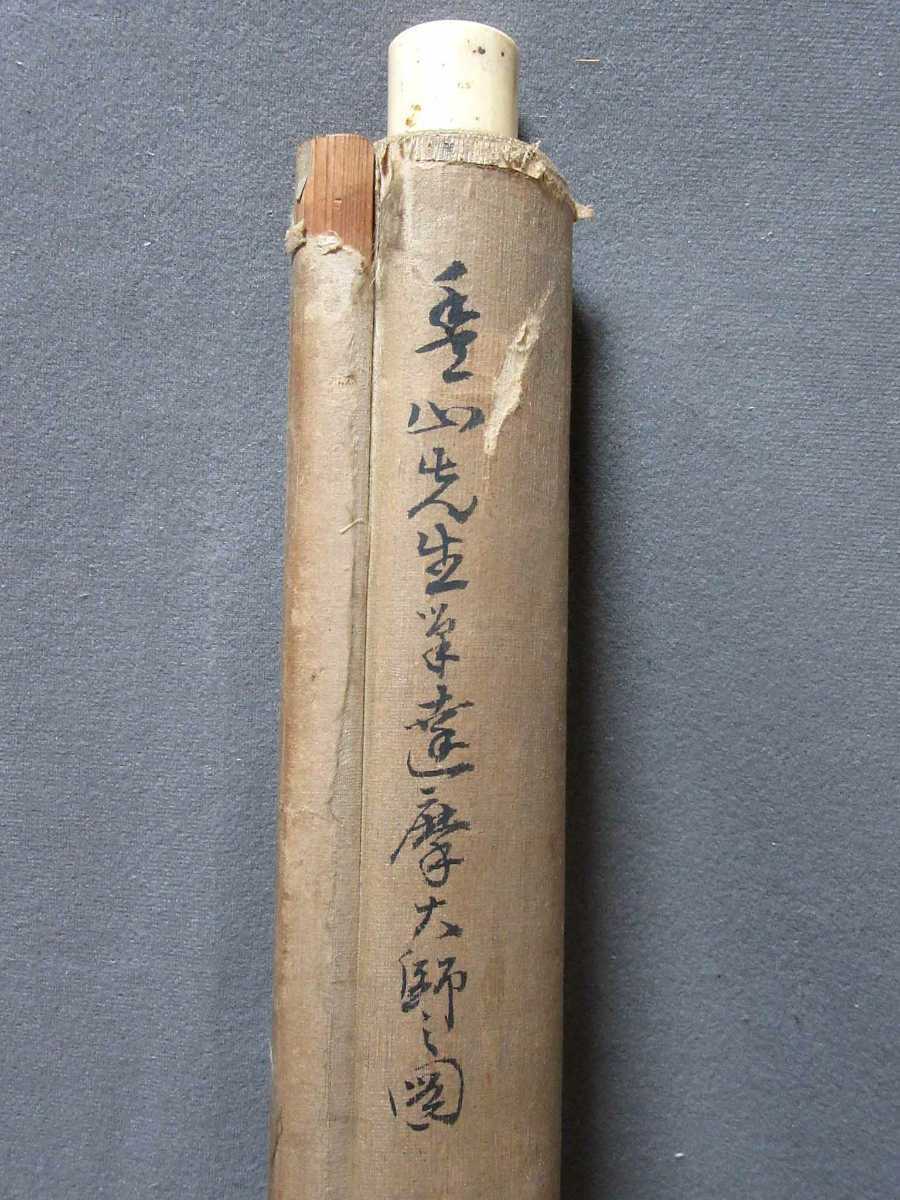 山先生筆達摩大師之圖